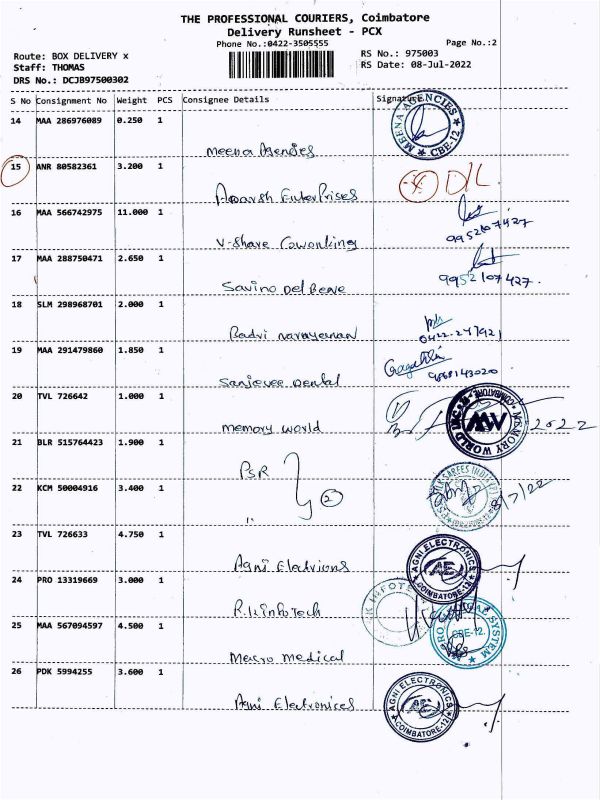 THE PROFESSIONAL COURIERS, Coimbatore
Delivery Runsheet - PCX
Phone No.:0422-3505555
Page No.:2
Route: BOX DELIVERY x
RS No.: 975003
Staff: THOMAS
RS Date: 08-Jul-2022
DRS No.: DCJB97500302
S No Consignment No Weight PCS Consignee Details Signature
14 MAA 286976089 0.250 1
Meena Agencies
MEENA AGENCIES CBE-12
15 ANR 80582361 3.200 1
Adarsh Enterprises
D/L
16 MAA 566742975 11.000 1
V-Share Coworking
9952107427
17 MAA 288750471 2.650 1
Savino Del Bene
9952107427.
18 SLM 298968701 2.000 1
Badri narayanan
19 MAA 291479860 1.850 1
Sanjeevee Dental
20 TVL 726642 1.000 1
memory world
MEMORY WORLD INC. COIMBATORE
2022
21 BLR 515764423 1.900 1
PSR
22 KCM 50004916 3.400 1
2
8/7/22
23 TVL 726633 4.750 1
Agni Electrions
AGNI ELECTRONICS COIMBATORE-12
24 PRO 13319669 3.000 1
R.K infoTech
25 MAA 567094597 4.500 1
Macro medical
SYSTEM CBE-12.
26 PDK 5994255 3.600 1
Agni Electronices
AGNI ELECTRONICS COIMBATORE-12